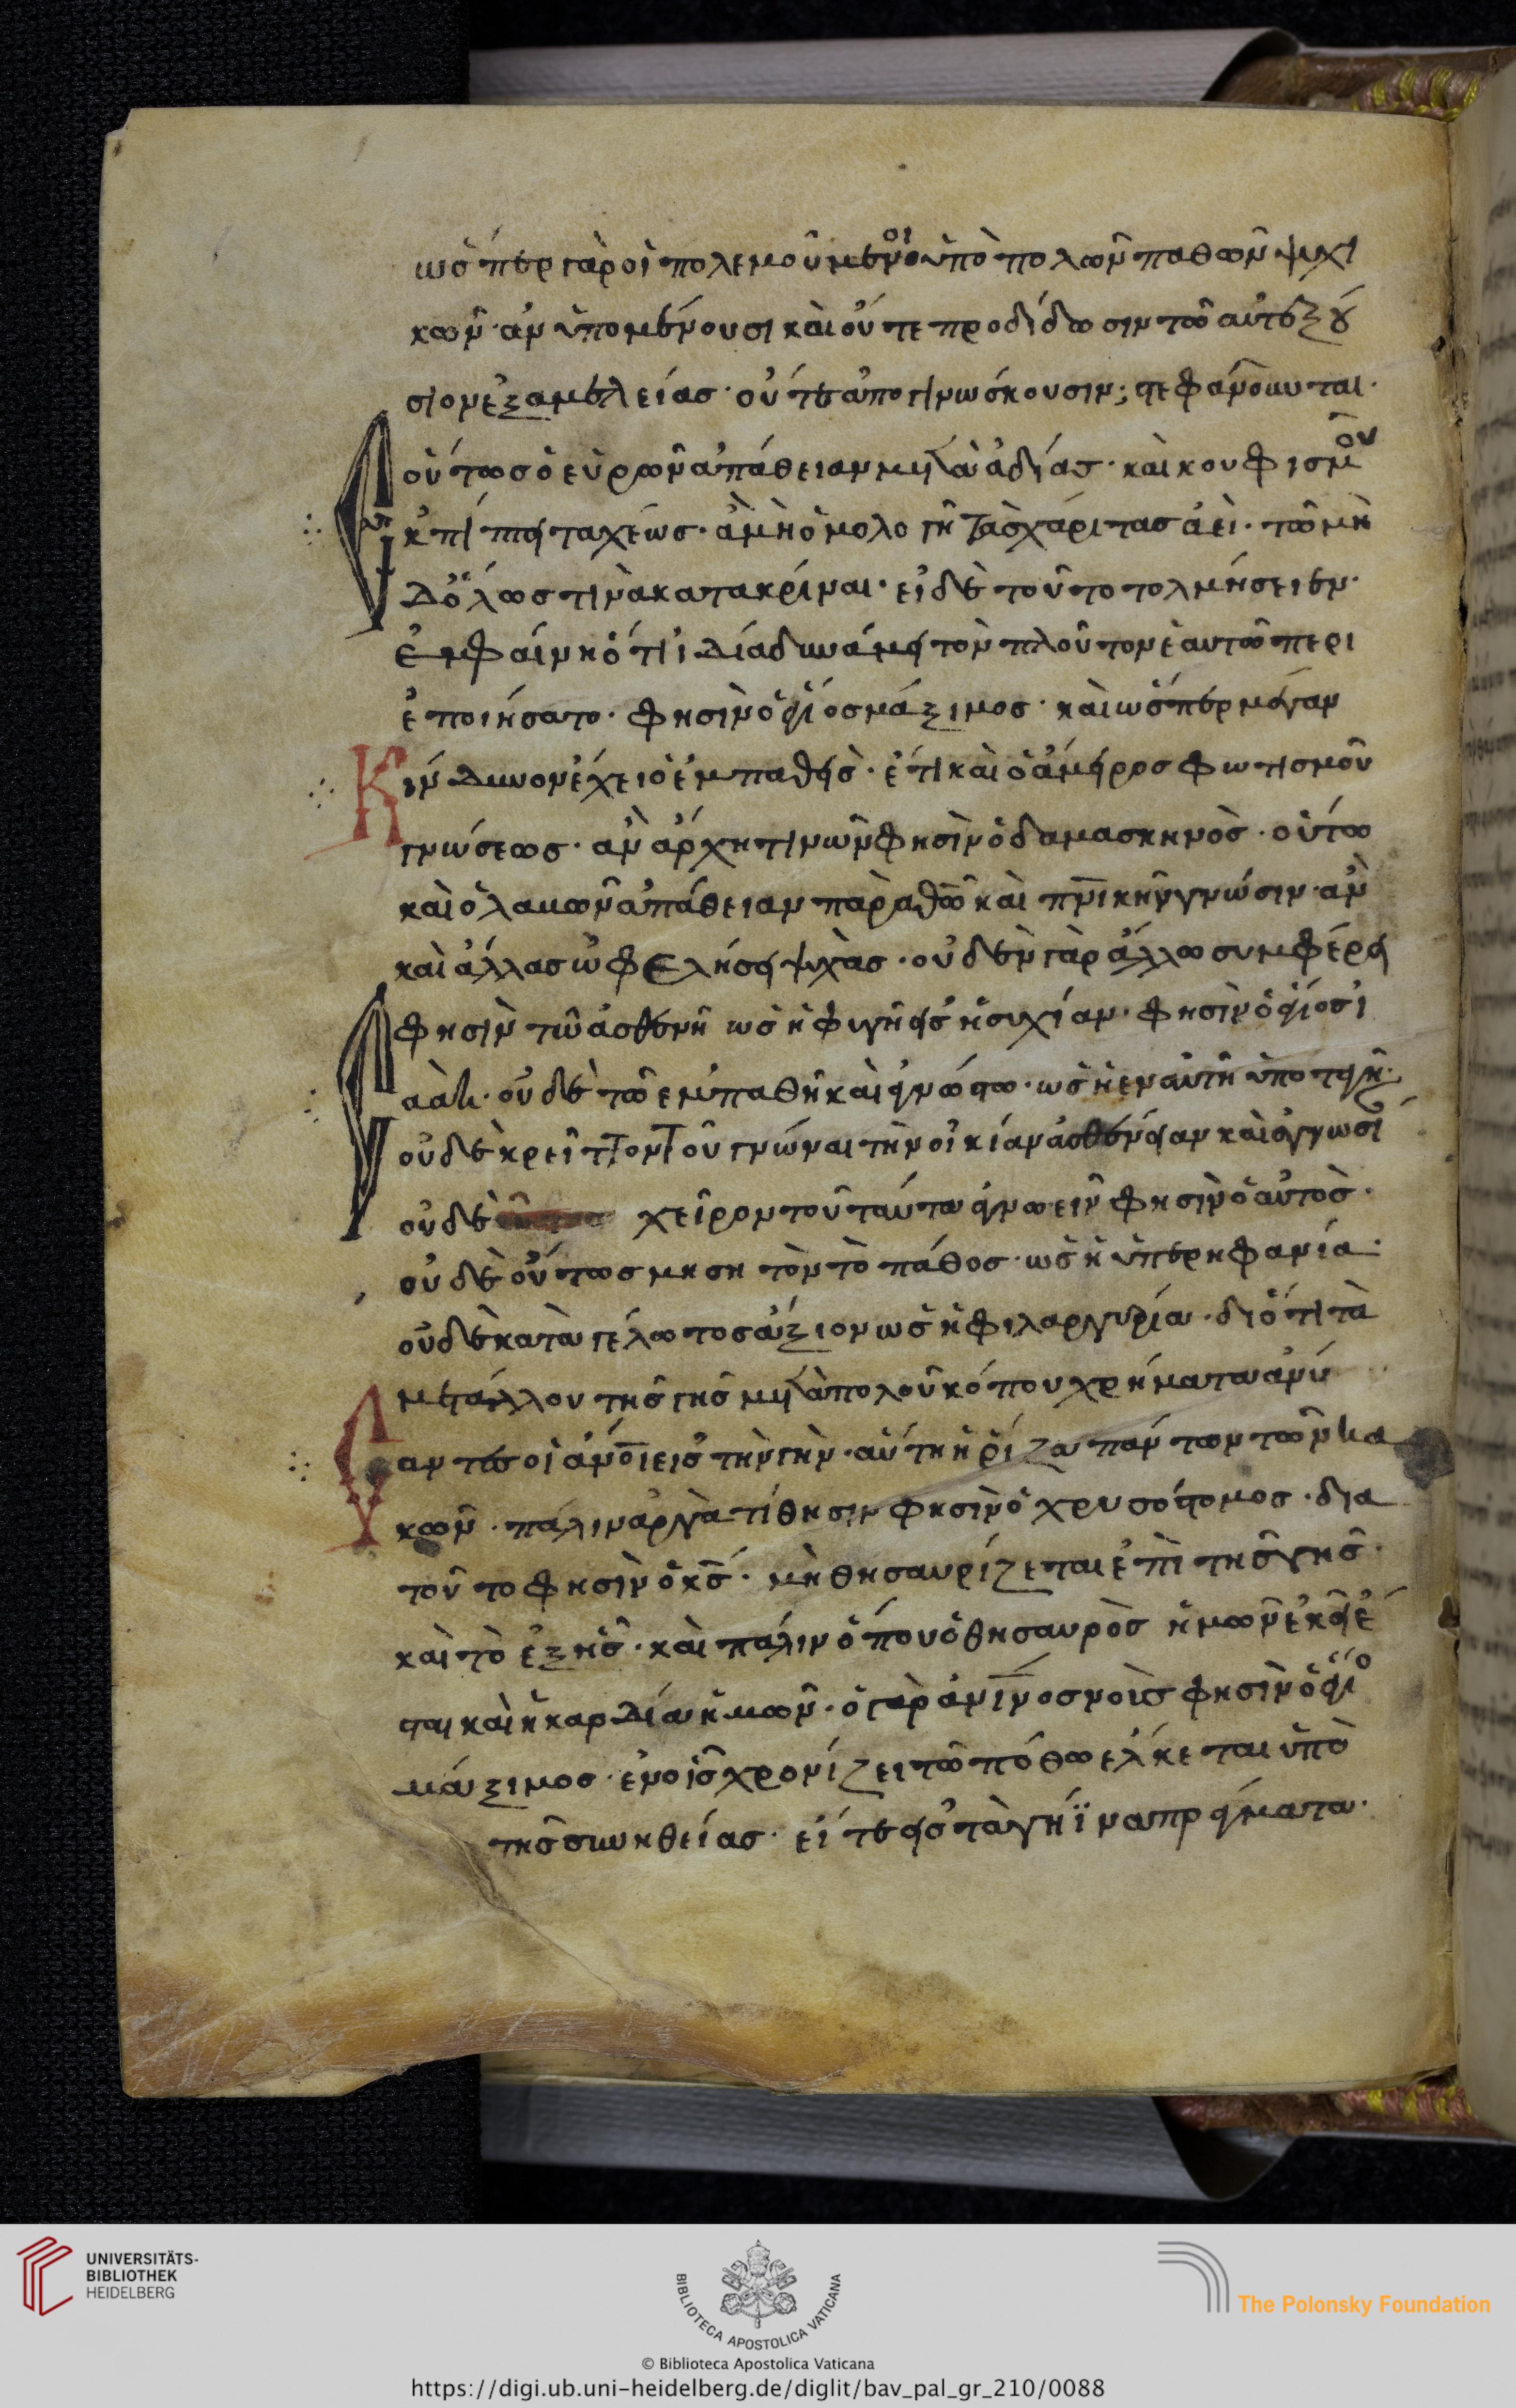 ὡσπερ γὰρ οἱ πολεμοῦμενοι ὑπὸ πολῶν παθῶν ψυχι
κῶν· ἀν ὑπομένουσι καὶ οὔτε προδίδωσιν τῶ αὐτεξού
σιον ἐξ ἀμελείας· οὔτε ἀπογινώσκουσιν; στεφάνουνται·
οὕτως ὁ εὑρῶν ἀπάθειαν μετὰ ἀδείας· καὶ κουφισμοῦ
ἐκπίπτει ταχέως· ἀν μὴ ὁμολογῆ τὰς χάριτας ἀεὶ· τῶ μὴ
δ' ὅλως τινὰ κατακρίναι· εἰ δὲ τοῦτο τολμήσειεν·
ἐμφαίνη ὅτι ἰδία δυνάμει τὸν πλοῦτον ἑαυτῶ περι
ἐποιήσατο· φησὶν ὁ ἅγιος μάξιμος· καὶ ὥσπερ μέγαν
Κίνδυνον ἔχει ὁ ἐμπαθεὶς· ἔτι καὶ ὁ ἄμοιρος φωτισμοῦ
γνώσεως· ἀν ἄρχη τινῶν φησὶν ὁ δαμασκηνὸς· οὕτω
καὶ ὁ λαμῶν ἀπάθειαν παρὰ θῶ καὶ πνικὴν γνώσιν· ἀν
καὶ ἀλλας ὠφελήσει ψυχὰς· οὐδὲν γὰρ ἄλλω συμφέρει
φησὶν τῶ ἀσθενῆ ὡς ἡ φυγὴ εἰς ἡσυχίαν· φησὶν ὁ ἅγιος ἰ
σαὰκ· οὐδὲ τῶ ἐμπαθῆ καὶ ἀγνώστω· ὡς ἡ ἐν αὐτῆ ὑποταγῆ·
οὐδὲ κρεῖττον τοῦ γνώναι τὴν οἰκίαν ἀσθένειαν καὶ ἀγνωσί
οὐδὲ χεῖρον τοῦ ταύτα ἀγνωεῖν φησὶν ὁ αὐτὸς·
οὐδὲ οὕτως μησητὸν τὸ πάθος· ὡς ἡ ὑπερηφανία·
οὐδὲ κατὰ γέλωτος ἄξιον ὡς ἡ φιλαργυρία· διότι τὰ
μετάλλου τῆς γῆς μετὰ πολοῦ κόπου χρήματα
αντες οἱ ἄνοιεις τὴν γὴν· αὕτη ἡ ῥίζα πάντων τῶν κα
κῶν· πάλιν ἀργὰ τίθησιν φησὶν ὁ χρυσόστομος· δια
τοῦτο φησὶν ὁ κς· μὴ θησαυρίζεται ἐπὶ τῆς γῆς·
καὶ τὸ ἐξῆς· καὶ πάλιν ὁπου ὁ θησαυρὸς ἡμῶν ἐκεῖ ἔ
σται καὶ ἡ καρδία ἡμῶν· ὁ γὰρ ἀνινος νοὶς φησὶν ὁ ἅγιο
μάξιμος· ἐν οἱς χρονίζει τῶ πόθω ἑλκεται ὑπὸ
τῆς συνηθείας· εἴτε εἰς τὰ γηϊνα πράγματα·
UNIVERSITÄTS-
BIBLIOTHEK
HEIDELBERG
BIBLIOTECA APOSTOLICA VATICANA
The Polonsky Foundation
© Biblioteca Apostolica Vaticana
https://digi.ub.uni-heidelberg.de/diglit/bav_pal_gr_210/0088